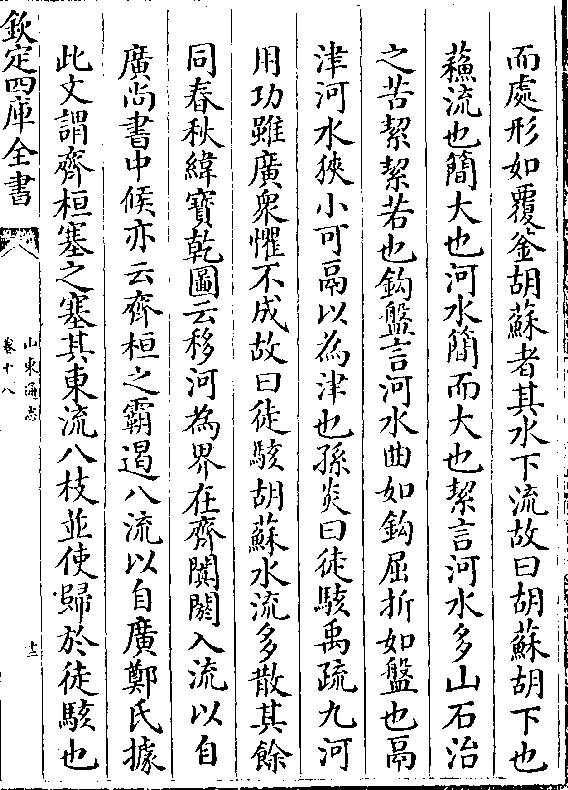 而處形如覆釜胡蘇者其水下流故曰胡蘇胡下也
蘓流也簡大也河水簡而大也絜言河水多山石治
之苦絜絜苦也鈎盤言河水曲如鈎屈折如盤也鬲
津河水狹小可鬲以為津也孫炎曰徒駭禹疏九河
用功雖廣衆懼不成故曰徒駭胡蘇水流多散其餘
同春秋緯寶乾圖云移河為界在齊闐閼入流以自
廣尚書中候亦云齊桓之霸遏八流以自廣鄭氏據
此文謂齊桓塞之塞其東流八枝並使歸於徒駭也
欽定四庫全書
山東通志
卷十八
十三